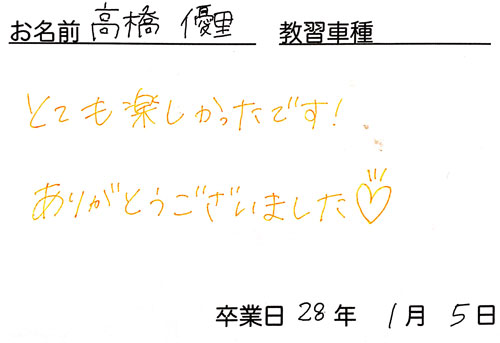 お名前 高橋 優里 教習車種
とても楽しかったです!
ありがとうございました♡
卒業日 28年 1月 5日